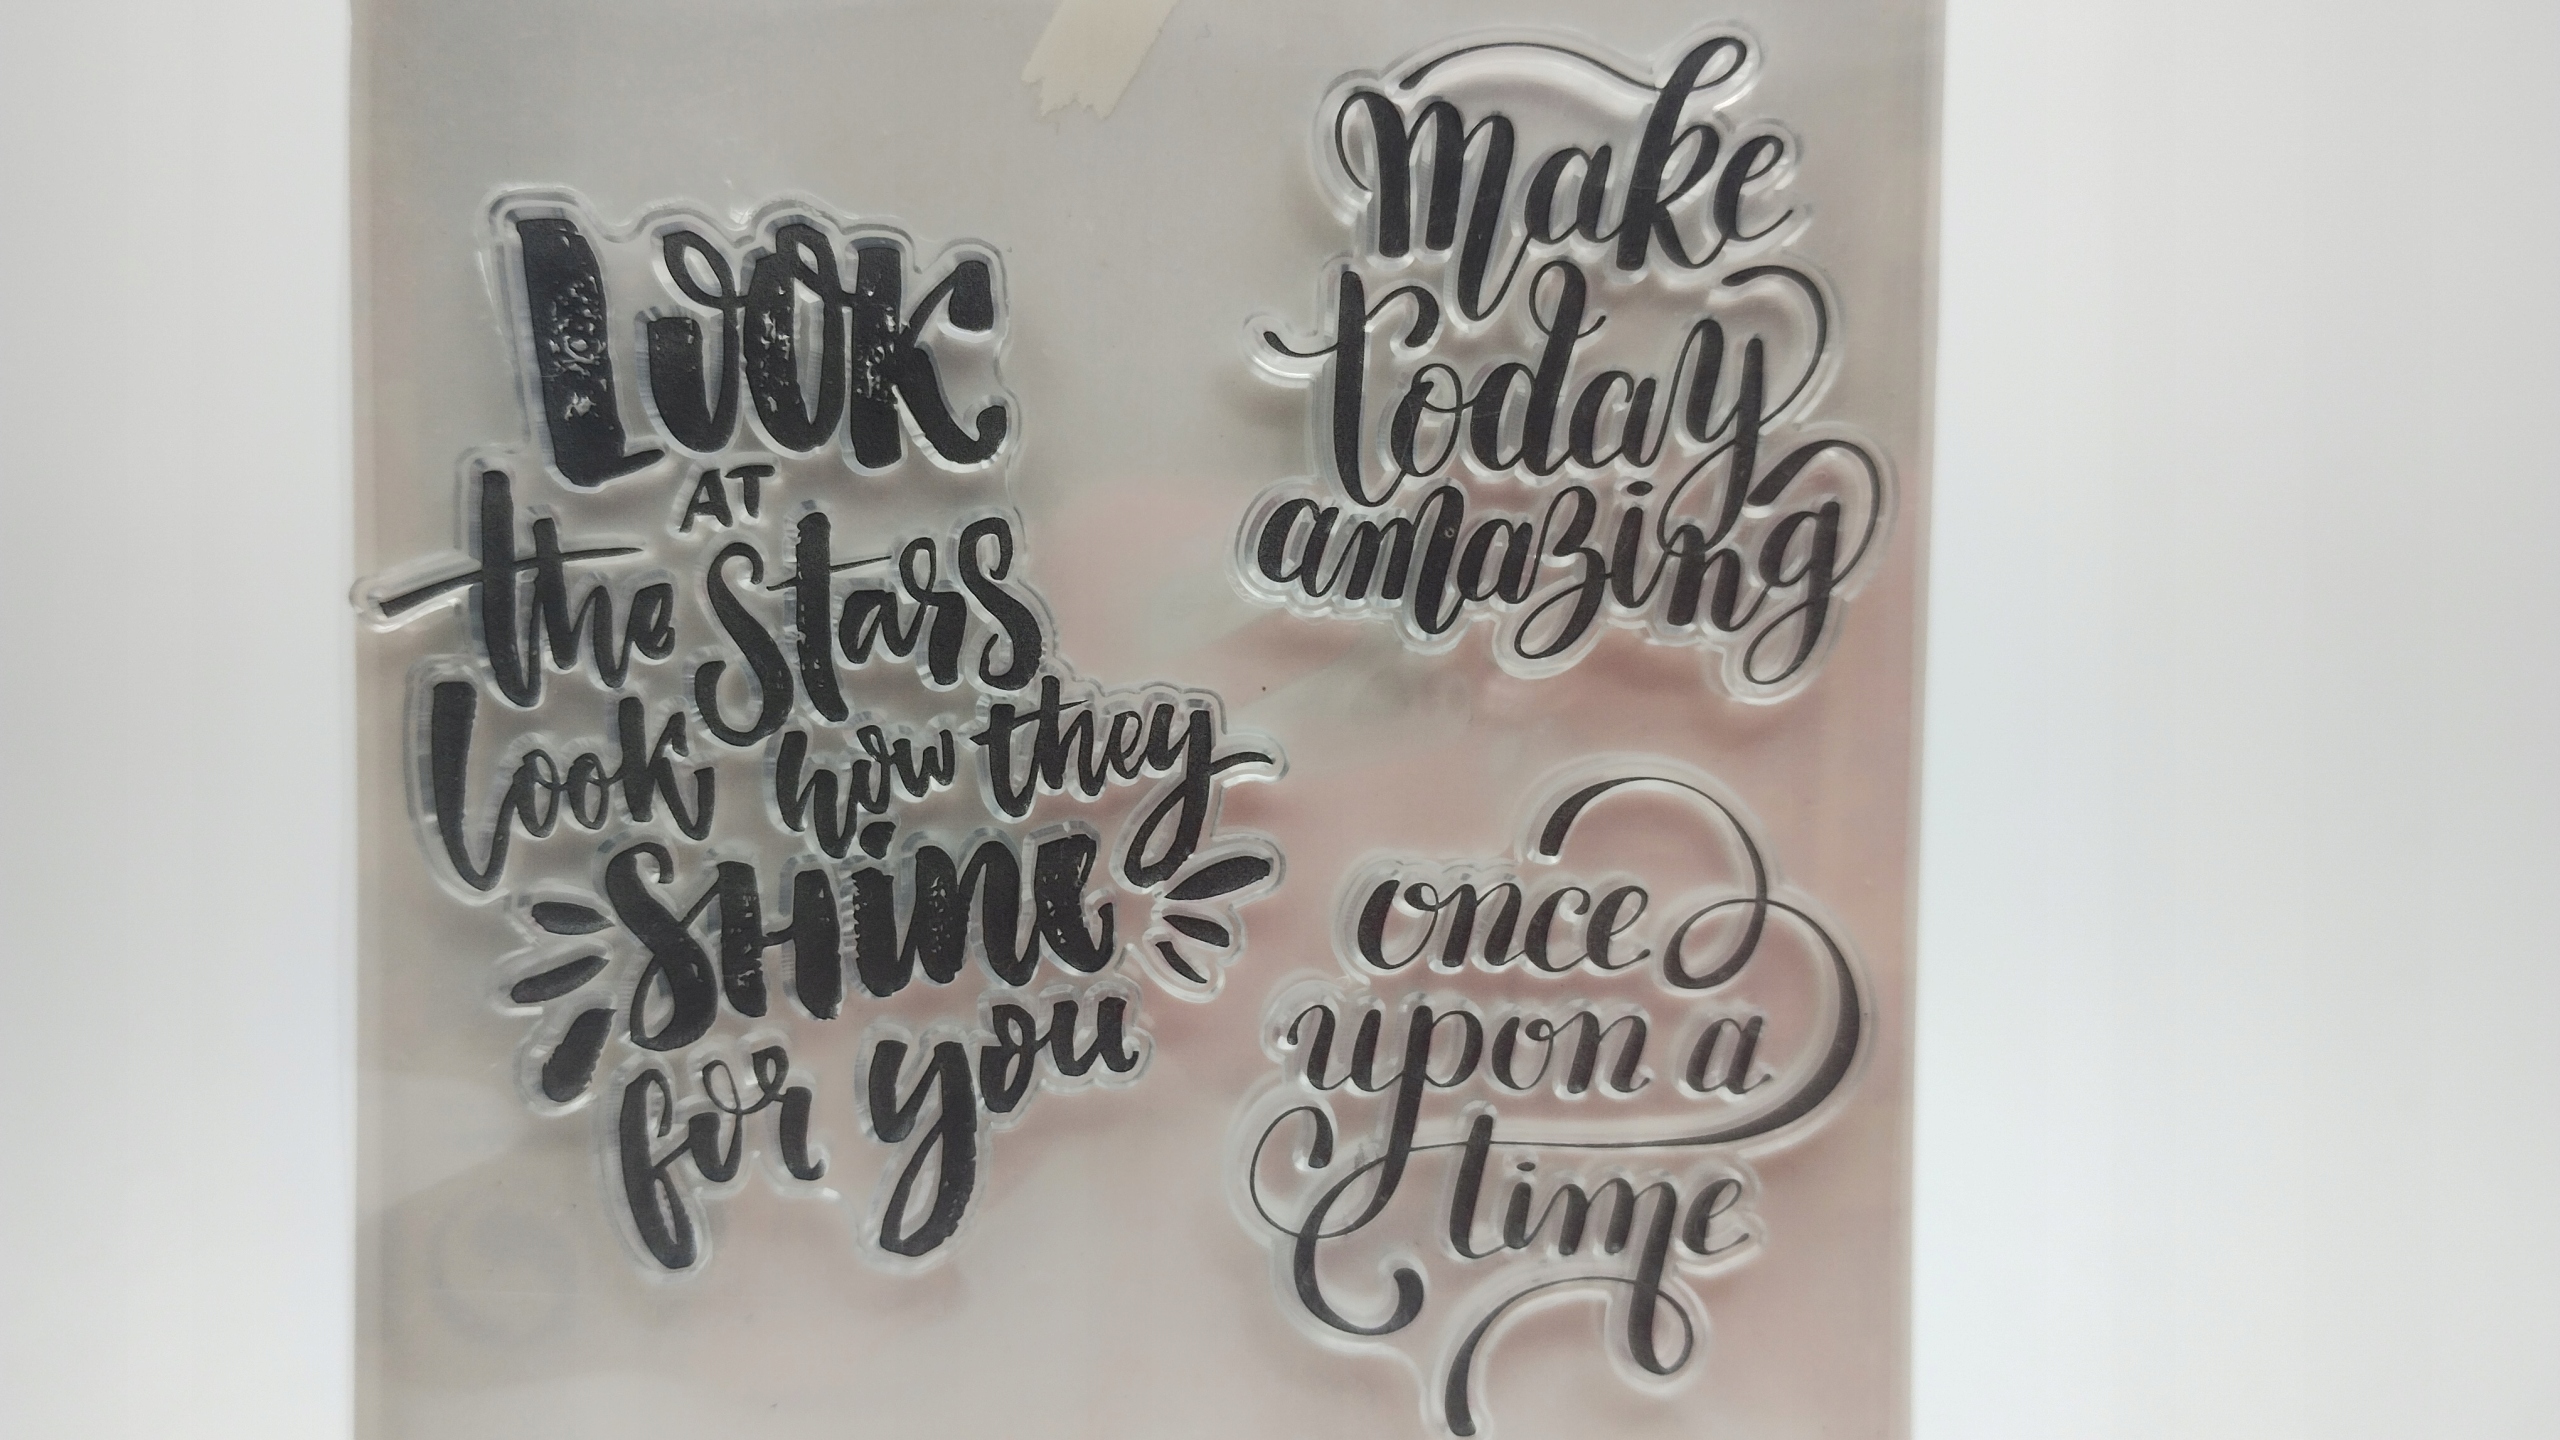 Look
AT
the stars
look how they
SHine
for you
make
today
amazing
once
upon a
time